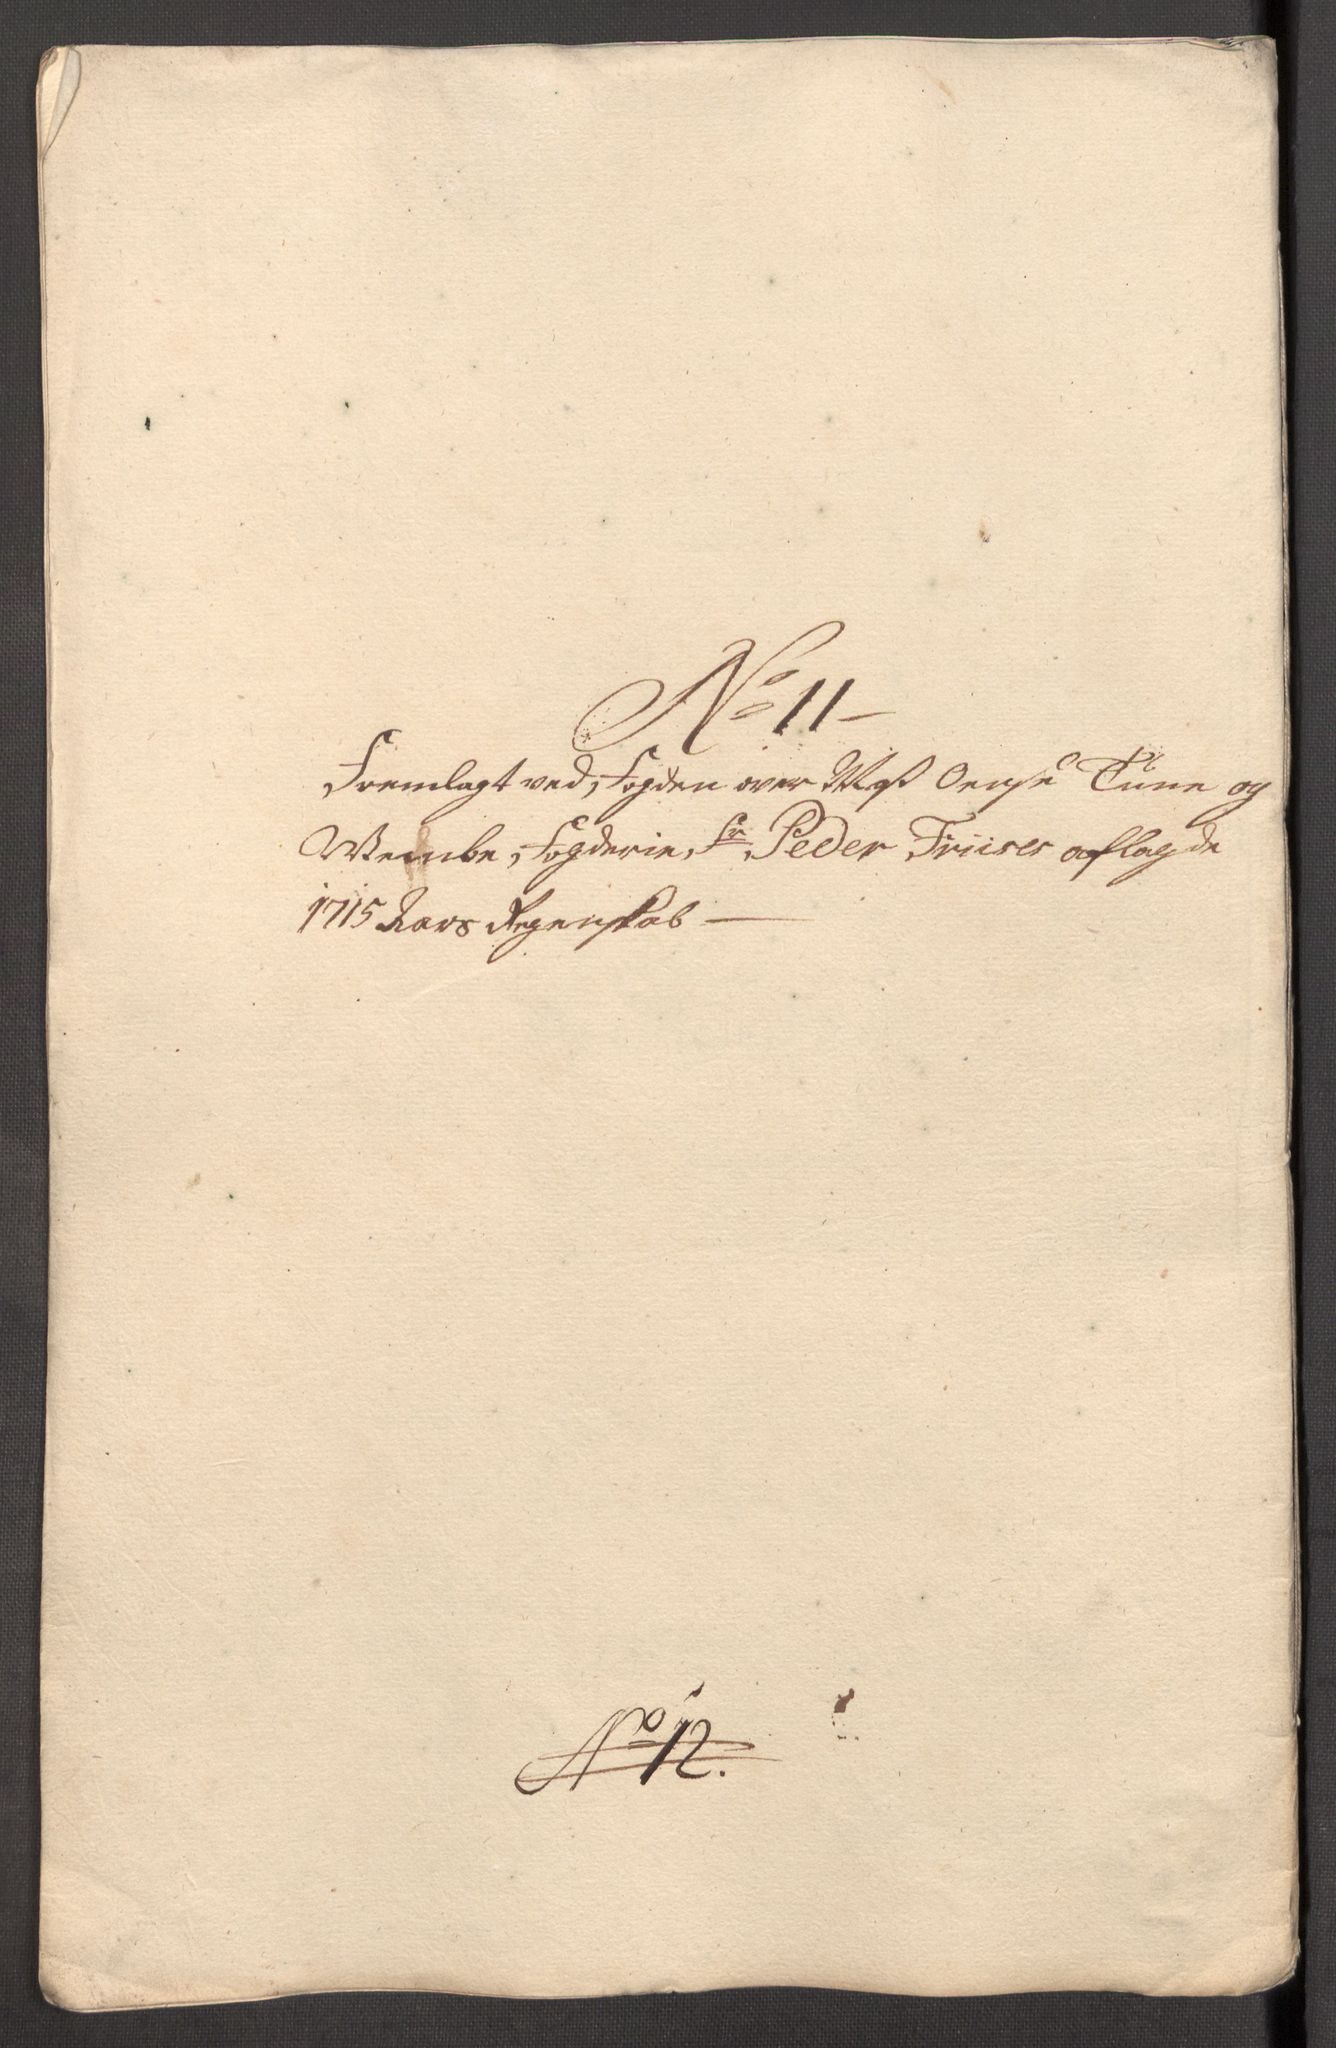 No 11 -
Fremlagt ved Fogden over Moss Onsøe Tune og
Weembe Fogderie Sr. Peder Friises aflagde
1715 Aars Regenskab —
No 12.